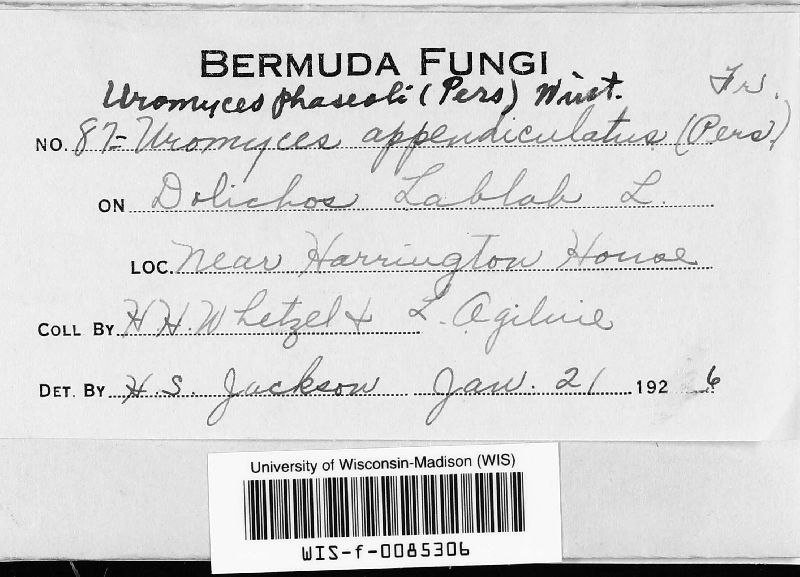 BERMUDA FUNGI
Uromyces phaseoli (Pers) Wint. Frs.
NO. 87- Uromyces appendiculatus (Pers)
ON Dolichos Lablab L.
LOC. Near Harrington House
COLL BY H H. Whetzel & L. Ogilvie
DET. BY H. S. Jackson Jan. 21 1926
University of Wisconsin-Madison (WIS)
WIS-f-0085306